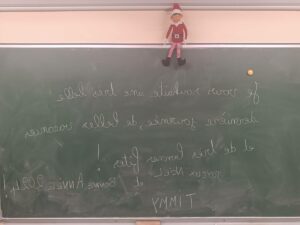 Je vous souhaite une très belle
dernière journée, de belles vacances
et de très bonnes fêtes !
Joyeux Noël
et Bonne Année 2024 !
TIMMY